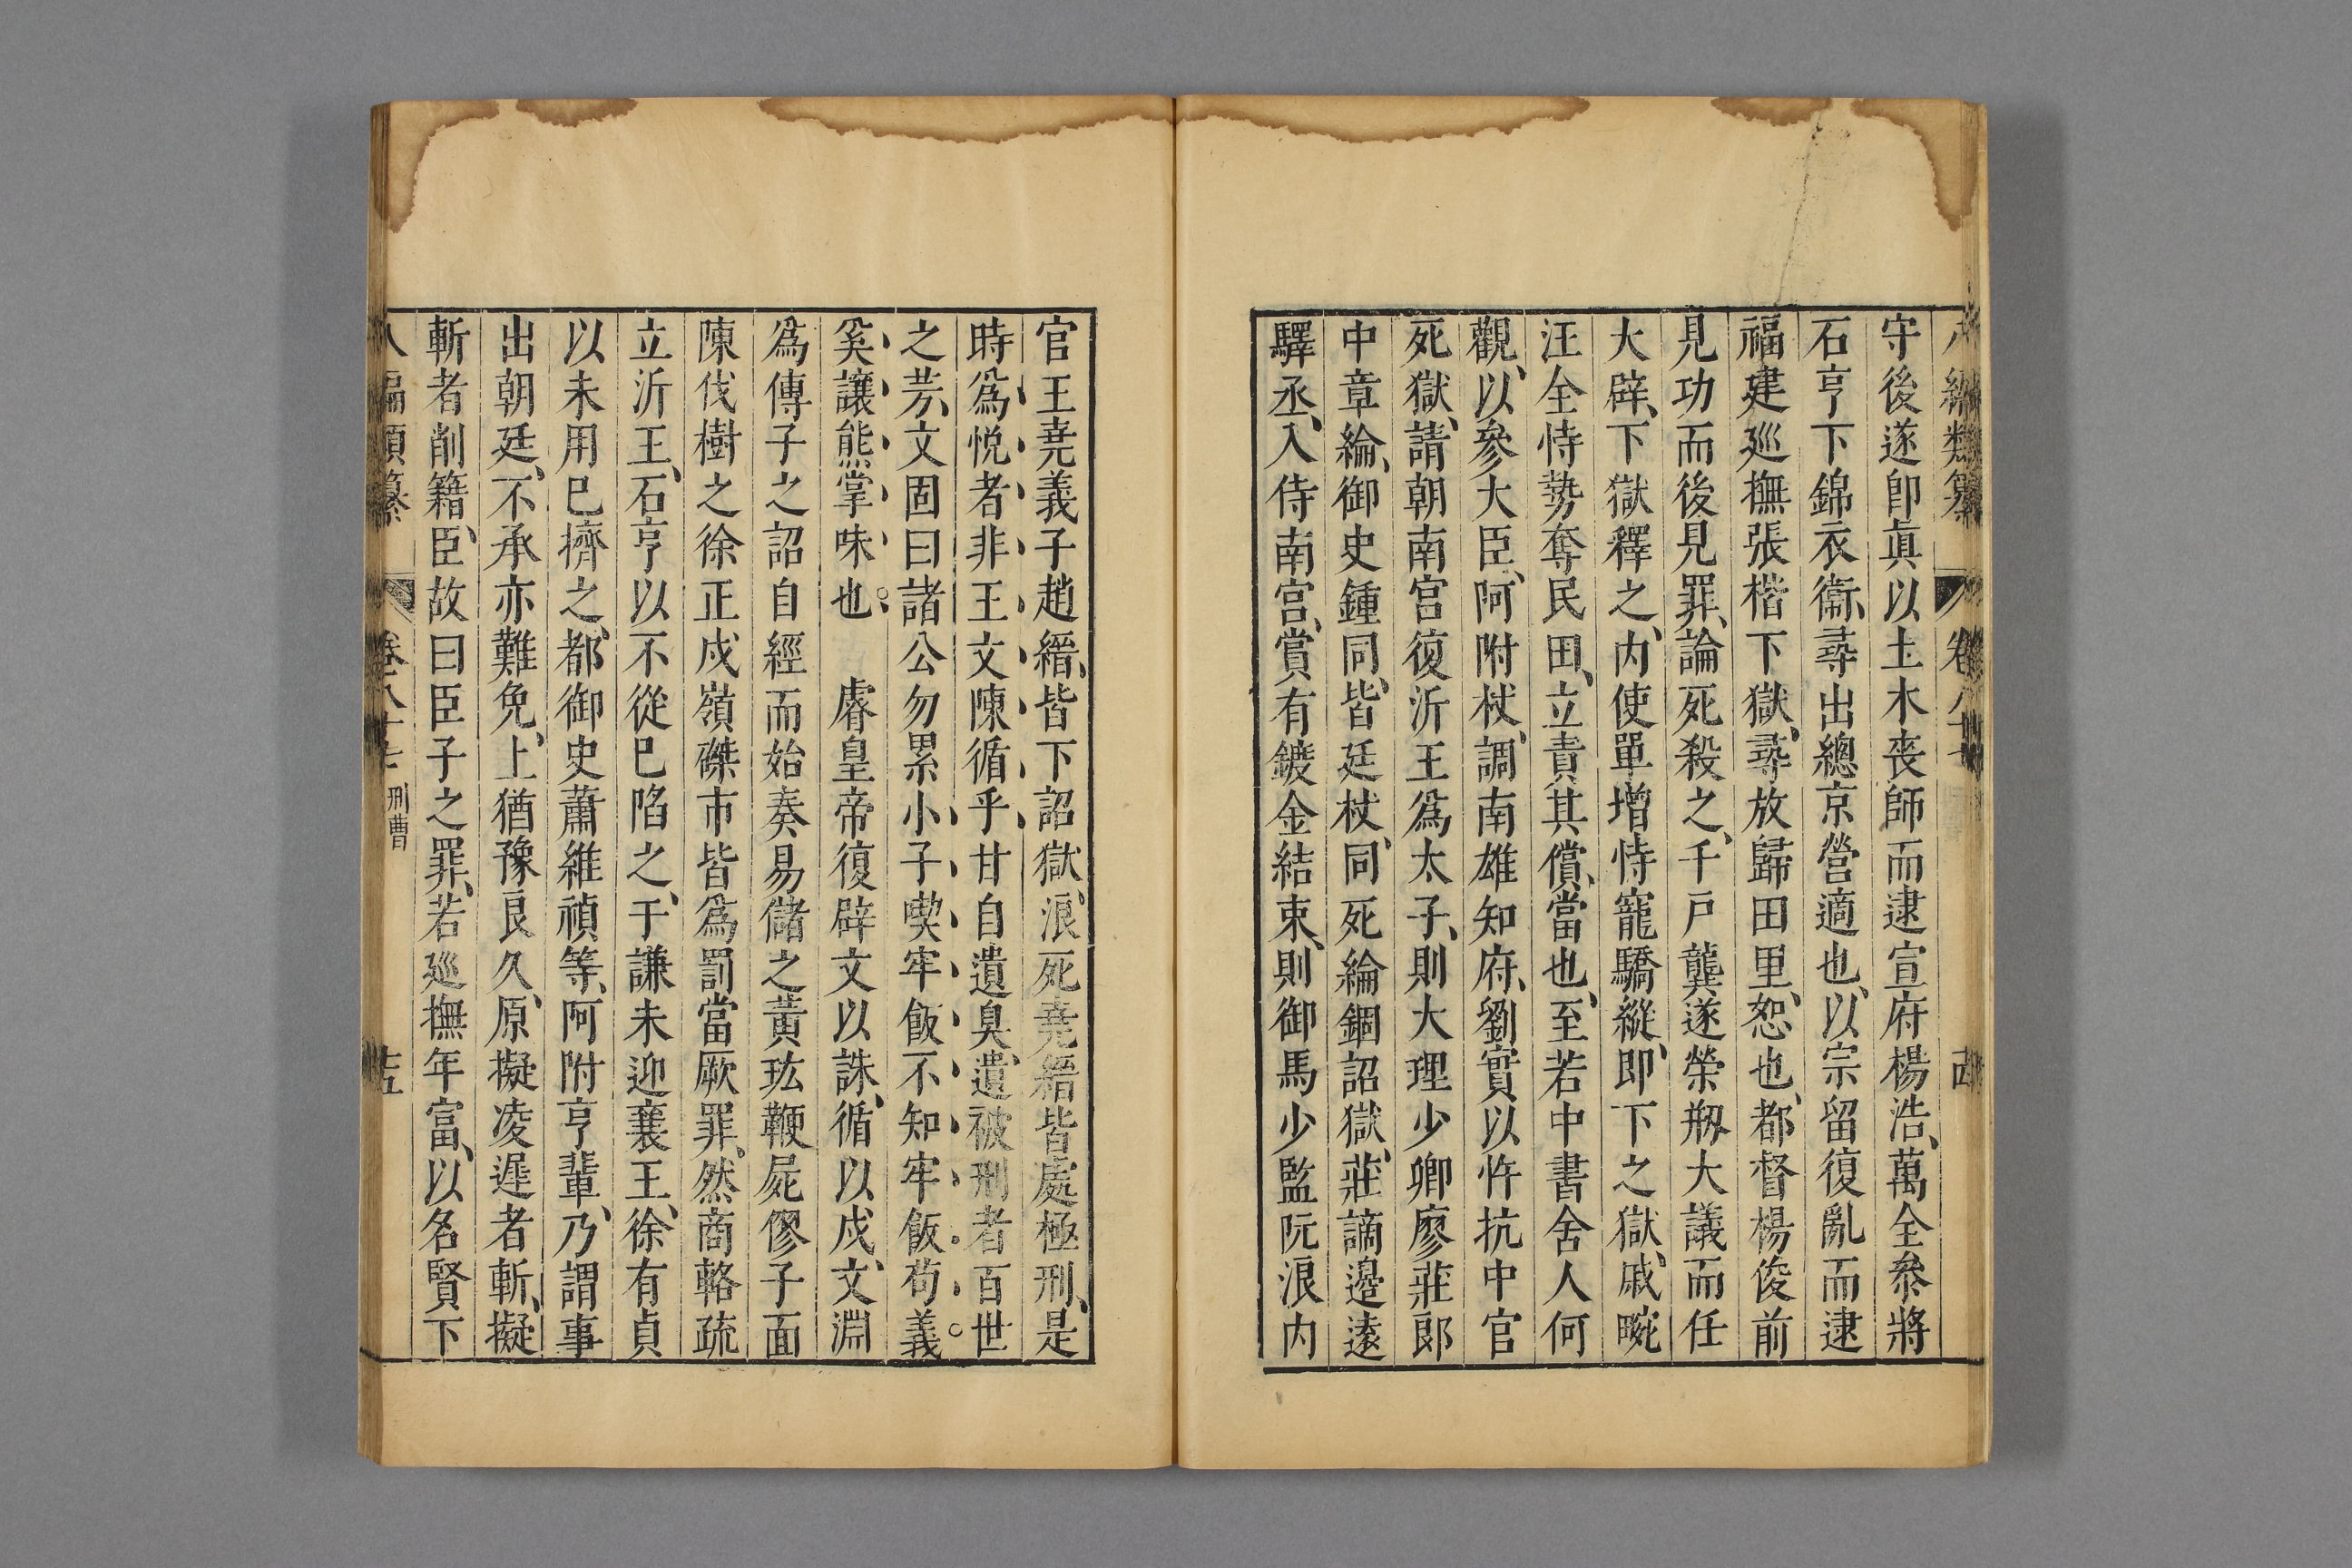 八編類纂 卷八十七
守後遂卽眞以土木丧師而逮宣府楊浩、萬全叅將
石亨下錦衣衞、尋出總京營適也、以宗留復亂而逮
福建廵撫張楷下獄、尋放歸田里、恕也、都督楊俊前
見功而後見罪、論死殺之、千戸龔遂榮剏大議而任
大辟、下獄釋之、内使單增恃寵驕縱、卽下之獄、戚畹
汪全恃勢奪民田、立責其償、當也、至若中書舍人何
觀、以參大臣、阿附杖、調南雄知府、劉實以忤抗中官
死獄、請朝南宮復沂王爲太子、則大理少卿廖莊郎
中章綸、御史鍾同、皆廷杖、同死綸錮詔獄、莊謫邊遠
驛丞、入侍南宮、賞有鍍金結束、則御馬少監阮浪内
官王尭義子趙縉、皆下詔獄、浪死尭縉皆處極刑、是
時爲悦者非王文陳循乎、甘自遺臭、遺被刑者百世
之芳、文固曰諸公勿累小子喫牢飯不知牢飯苟義
奚讓熊掌味也。 睿皇帝復辟文以誅、循以戍、文淵
爲傳子之詔自經而始奏易儲之黄玹鞭屍僇子面
陳伐樹之徐正戍嶺磔市皆爲罰當厥罪。然商輅疏
立沂王、石亨以不從已陷之、于謙未迎襄王、徐有貞
以未用已擠之、都御史蕭維禎等、阿附亨輩、乃謂事
出朝廷、不承亦難免、上猶豫良久、原擬凌遲者斬、擬
斬者削籍、臣故曰臣子之罪、若廵撫年富、以名賢下
八編類纂 卷八十七 刑曹 十五